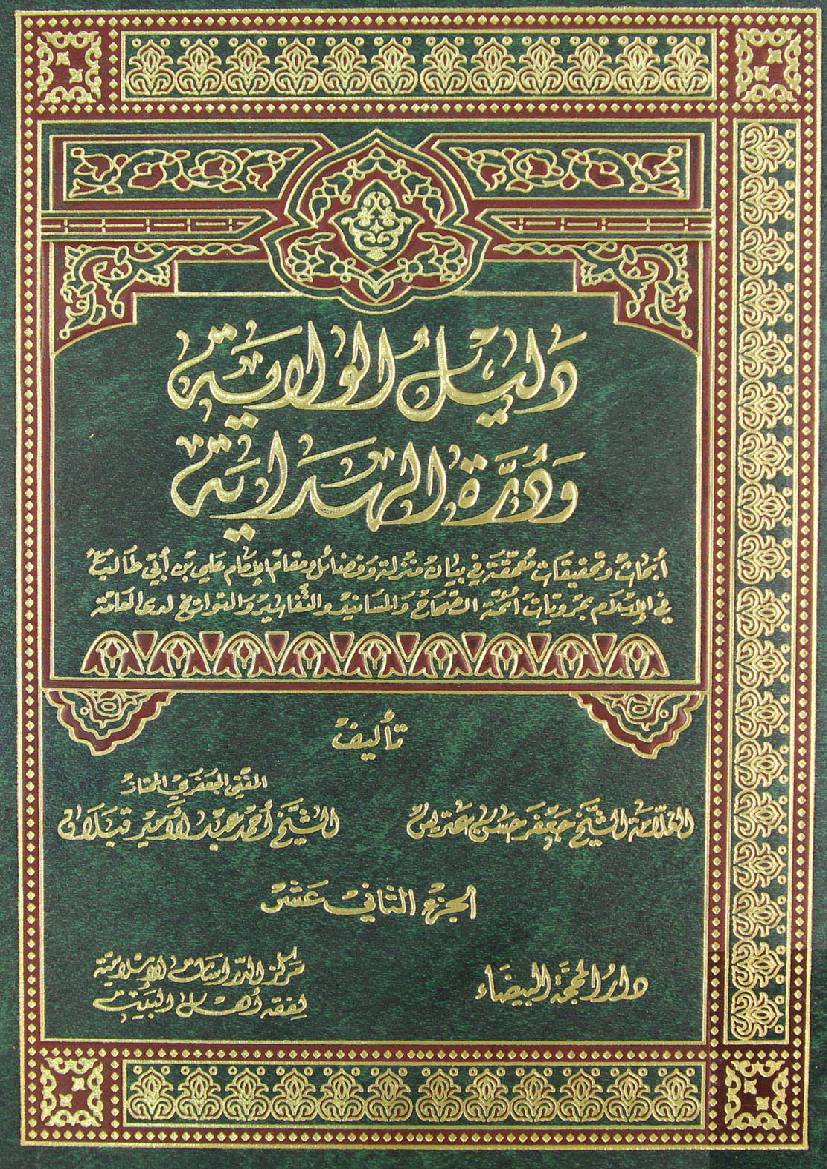 دَليلُ الولاية
وَدُرَّة الهداية
أبحاث وتحقيقات محققة في بيان منزلة وفضائل مقام الإمام علي بن أبي طالب ع
في الإسلام بمرويات أئمة الصحاح والمسانيد والتفاسير والتواريخ لدى العامة
تأليف
المفتي الجعفري الممتاز
العلامة الشيخ جعفر حسن عتريس الشيخ أحمد عبد الأمير قبلان
الجزء الثاني عشر
دار المحجة البيضاء
مركز الدراسات الإسلامية
لفقه أهل البيت